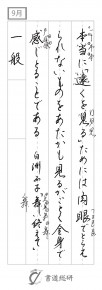 9月
本当に「遠くを見る」ためには肉眼でとらえ
られないものをあたかも見るがごとく全身で
感じとることである 白洲正子 舞終えて
一般
書道総研